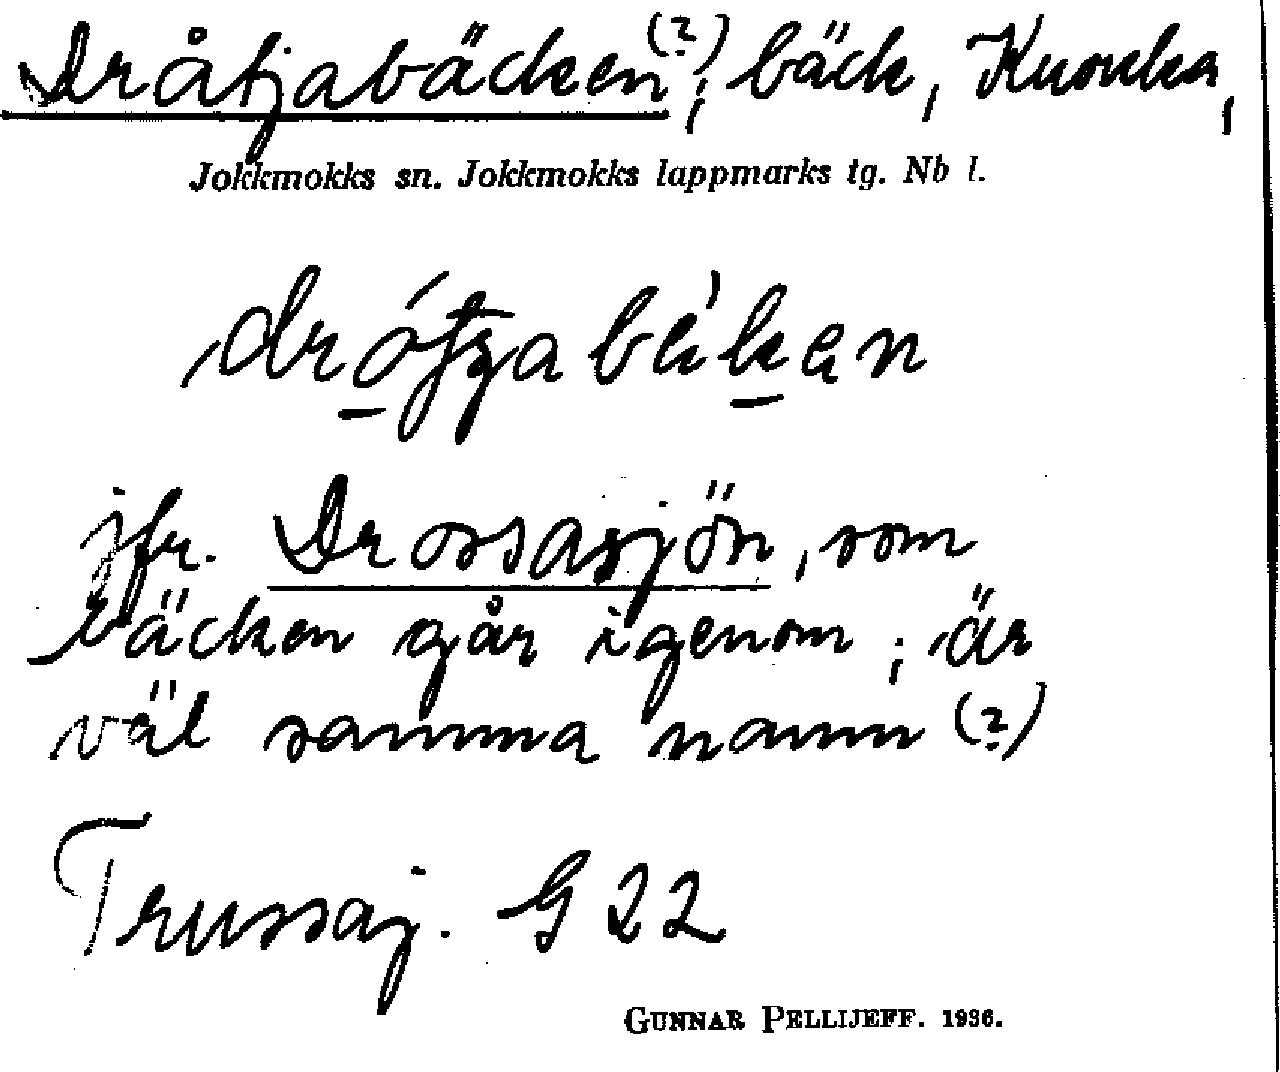 Dråtjabäcken(?), bäck, Kuouka,
Jokkmokks sn. Jokkmokks lappmarks tg. Nb l.
jfr. Drossasjön, som
bäcken går igenom; är
väl samma namn (?)
Trussaj. G 22
GUNNAR PELLIJEFF. 1936.